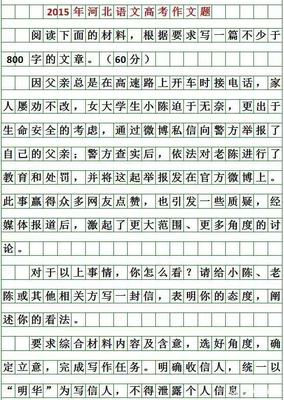 2015年河北语文高考作文题
阅读下面的材料，根据要求写一篇不少于
800 字的文章。（60分）
因父亲总是在高速路上开车时接电话，家
人屡劝不改，女大学生小陈迫于无奈，更出于
生命安全的考虑，通过微博私信向警方举报了
自己的父亲；警方查实后，依法对老陈进行了
教育和处罚，并将这起举报发在官方微博上。
此事赢得众多网友点赞，也引发一些质疑，经
媒体报道后，激起了更大范围、更多角度的讨
论。
对于以上事情，你怎么看？请给小陈、老
陈或其他相关方写一封信，表明你的态度，阐
述你的看法。
要求综合材料内容及含意，选好角度，确
定立意，完成写作任务。明确收信人，统一以
“明华”为写信人，不得泄露个人信息。